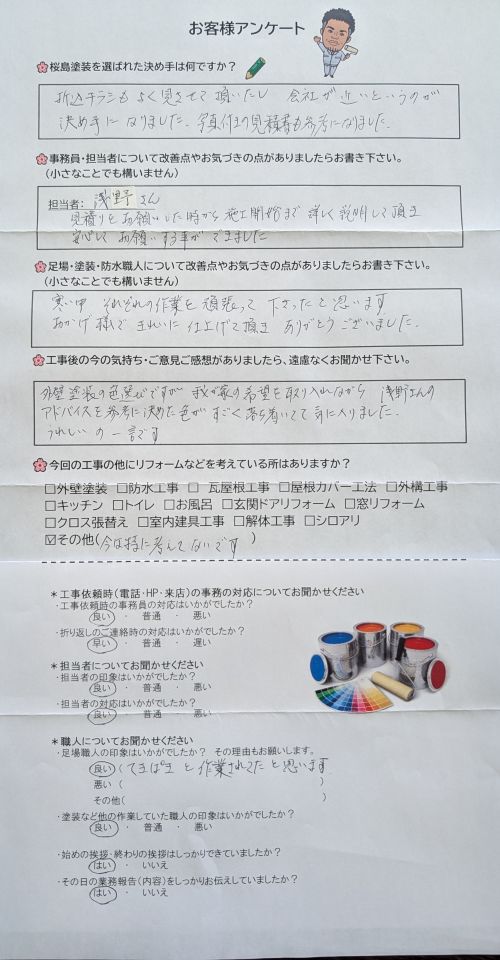 お客様アンケート
桜島塗装を選ばれた決め手は何ですか？
折込チラシもよく見させて頂いたし 会社が近いというのが
決め手になりました。写真付の見積書も参考になりました。
事務員・担当者について改善点やお気づきの点がありましたらお書き下さい。
（小さなことでも構いません）
担当者： 浅野さん
見積りをお願いした時から施工開始まで詳しく説明して頂き
安心してお願いする事ができました
足場・塗装・防水職人について改善点やお気づきの点がありましたらお書き下さい。
（小さなことでも構いません）
寒い中 それぞれの作業を頑張って下さったと思います
おかげ様で きれいに仕上げて頂き ありがとうございました。
工事後の今の気持ち・ご意見ご感想がありましたら、遠慮なくお聞かせ下さい。
外壁塗装の色選びですが 我が家の希望を取り入れながら 浅野さんの
アドバイスを参考に決めた色が すごく落ち着いてて気に入りました。
うれしいの一言です
今回の工事の他にリフォームなどを考えている所はありますか？
□外壁塗装 □防水工事 □ 瓦屋根工事 □屋根カバー工法 □外構工事
□キッチン □トイレ □お風呂 □玄関ドアリフォーム □窓リフォーム
□クロス張替え □室内建具工事 □解体工事 □シロアリ
☑その他(今は特に考えてないです )
＊工事依頼時（電話・HP・来店）の事務の対応についてお聞かせください
・工事依頼時の事務員の対応はいかがでしたか？
良い ・ 普通 ・ 悪い
・折り返しのご連絡時の対応はいかがでしたか？
早い ・ 普通 ・ 遅い
＊担当者についてお聞かせください
・担当者の印象はいかがでしたか？
良い ・ 普通 ・ 悪い
・担当者の対応はいかがでしたか？
良い ・ 普通 ・ 悪い
＊職人についてお聞かせください
・足場職人の印象はいかがでしたか？ その理由もお願いします。
良い (てきぱきと作業されてたと思います
悪い ( )
その他( )
・塗装など他の作業していた職人の印象はいかがでしたか？
良い ・ 普通 ・ 悪い
・始めの挨拶・終わりの挨拶はしっかりできていましたか？
はい ・ いいえ
・その日の業務報告（内容）をしっかりお伝えしていましたか？
はい ・ いいえ